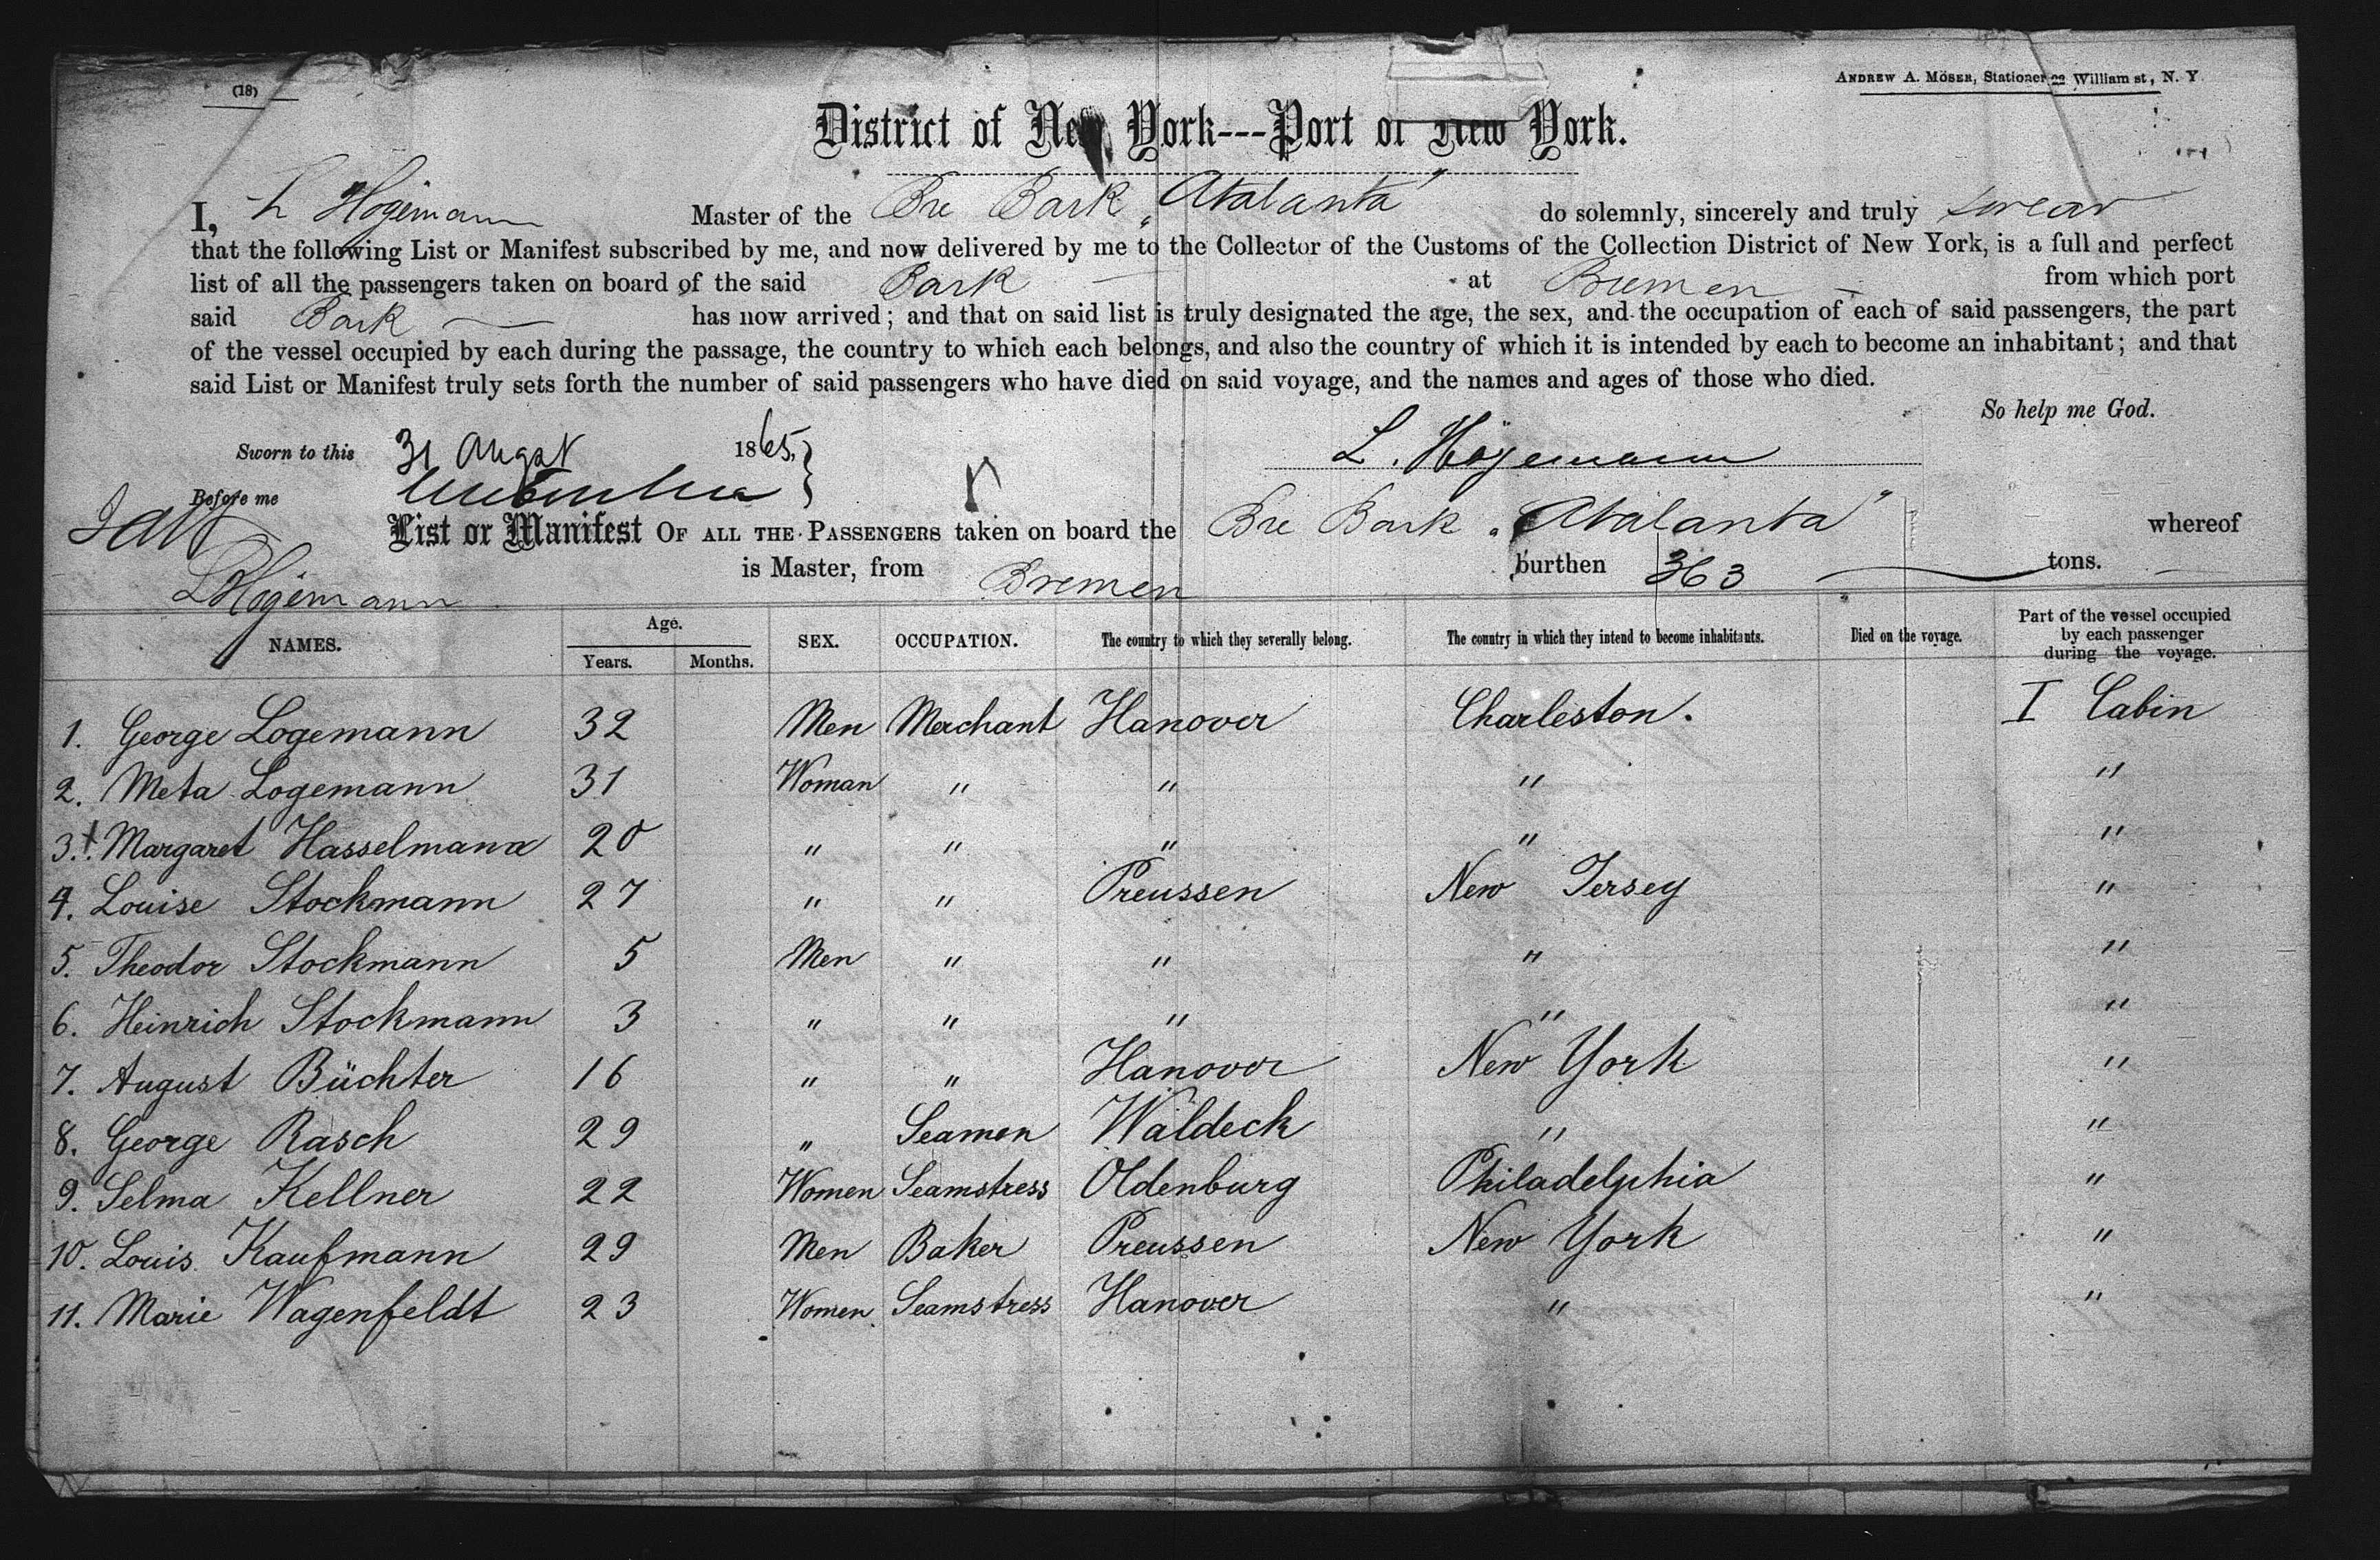 (18)
ANDREW A. MÖSER, Stationer 22 William st, N. Y.
District of New York---Port of New York.
I, L Högemann Master of the Bre Bark „Atalanta" do solemnly, sincerely and truly swear
that the following List or Manifest subscribed by me, and now delivered by me to the Collector of the Customs of the Collection District of New York, is a full and perfect
list of all the passengers taken on board of the said Bark at Bremen from which port
said Bark has now arrived; and that on said list is truly designated the age, the sex, and the occupation of each of said passengers, the part
of the vessel occupied by each during the passage, the country to which each belongs, and also the country of which it is intended by each to become an inhabitant; and that
said List or Manifest truly sets forth the number of said passengers who have died on said voyage, and the names and ages of those who died.
So help me God.
Sworn to this 31 Augst 1865,
L. Högemann
Before me
List or Manifest OF ALL THE PASSENGERS taken on board the Bre Bark „Atalanta" whereof
L Högemann is Master, from Bremen burthen 363 tons.
NAMES. Age. Years. Months. SEX. OCCUPATION. The country to which they severally belong. The country in which they intend to become inhabitants. Died on the voyage. Part of the vessel occupied by each passenger during the voyage.
1. George Logemann 32 Men Merchant Hanover Charleston. I Cabin
2. Meta Logemann 31 Woman " " " "
3. Margaret Hasselmann 20 " " " " "
4. Louise Stockmann 27 " " Preussen New Jersey "
5. Theodor Stockmann 5 Men " " " "
6. Heinrich Stockmann 3 " " " " "
7. August Büchter 16 " " Hanover New York "
8. George Rasch 29 " Seamen Waldeck " "
9. Selma Kellner 22 Women Seamstress Oldenburg Philadelphia "
10. Louis Kaufmann 29 Men Baker Preussen New York "
11. Marie Wagenfeldt 23 Women Seamstress Hanover " "